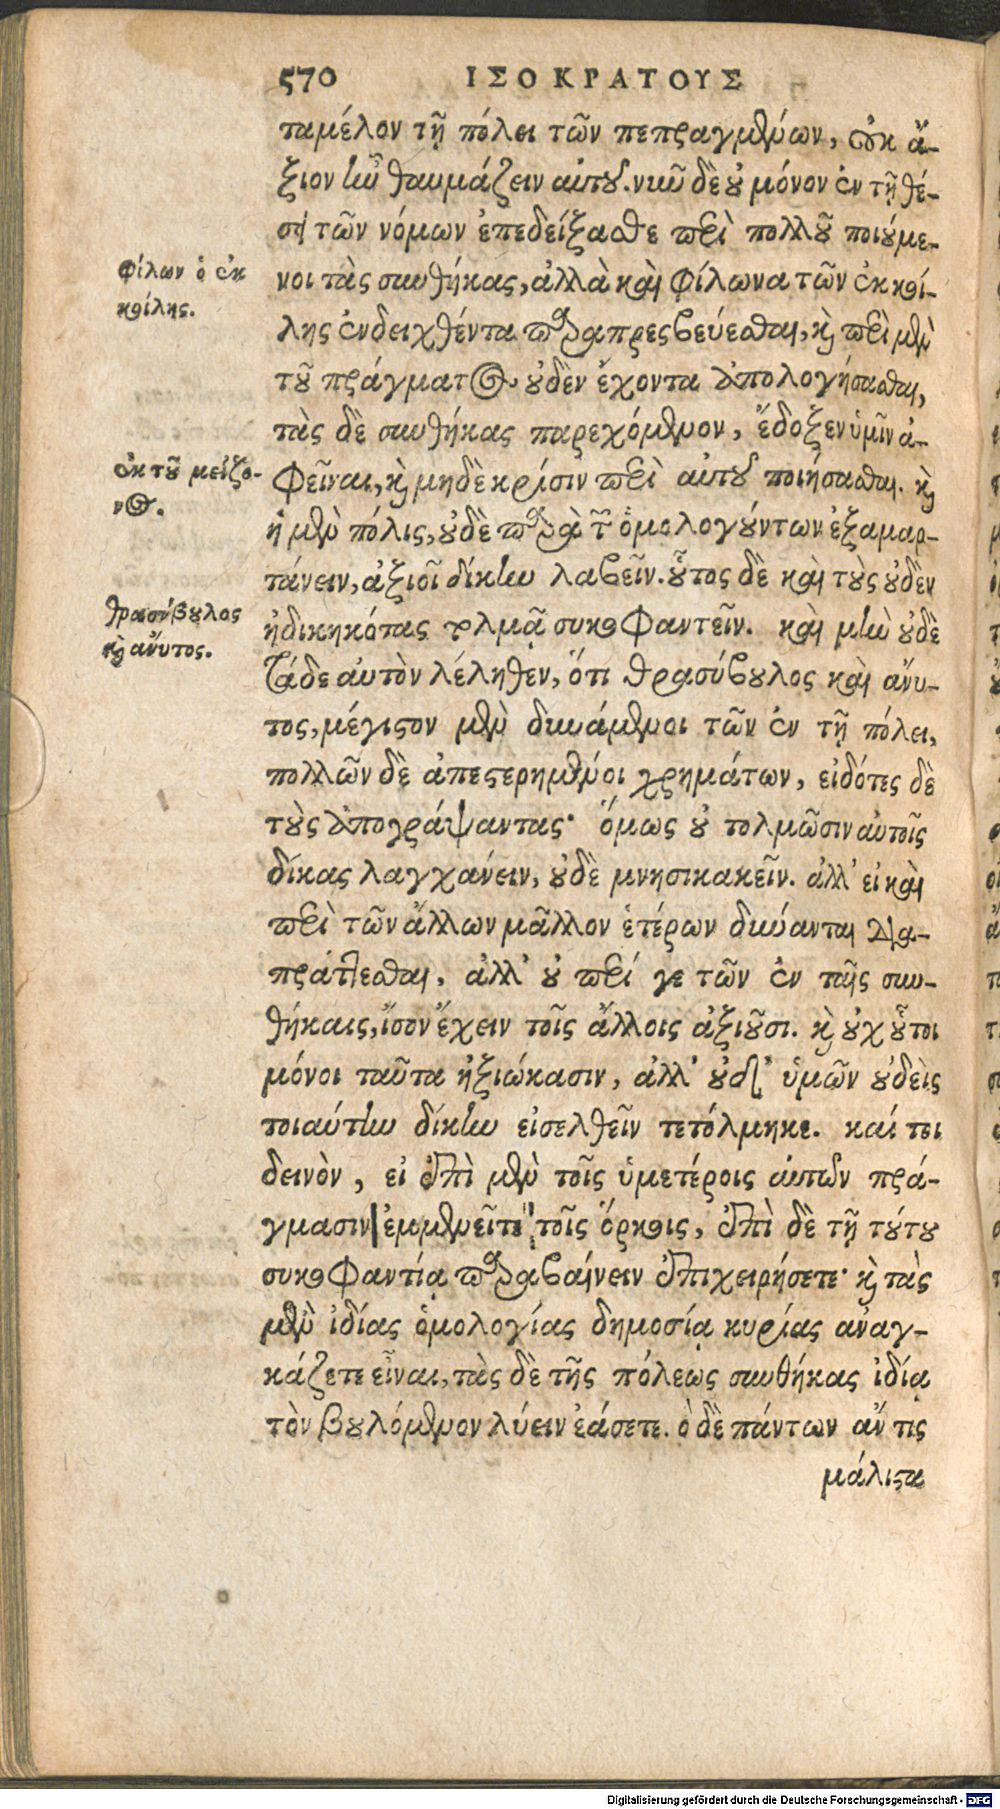 570 ΙΣΟΚΡΑΤΟΥΣ
ταμέλον τῇ πόλει τῶν πεπραγμένων, οὐκ ἄ-
ξιον ἦν θαυμάζειν αὐτοῦ. νῦν δὲ οὐ μόνον ἐν τῇ θέ-
σει τῶν νόμων ἐπεδείξασθε περὶ πολλοῦ ποιούμε-
νοι τὰς συνθήκας, ἀλλὰ καὶ Φίλωνα τῶν ἐκ κοί-
λης ἐνδειχθέντα παραπρεσβεύεσθαι, καὶ περὶ μὲν
τοῦ πράγματος οὐδὲν ἔχοντα ἀπολογήσασθαι,
τὰς δὲ συνθήκας παρεχόμενον, ἔδοξεν ὑμῖν ἀ-
φεῖναι, καὶ μηδὲ κρίσιν περὶ αὐτοῦ ποιήσασθαι. καὶ
ἡ μὲν πόλις, οὐδὲ παρὰ τῶν ὁμολογούντων ἐξαμαρ-
τάνειν, ἀξιοῖ δίκην λαβεῖν. οὗτος δὲ καὶ τοὺς οὐδὲν
ἠδικηκότας τολμᾷ συκοφαντεῖν. καὶ μὴν οὐδὲ
τάδε αὐτὸν λέληθεν, ὅτι Θρασύβουλος καὶ ἄνυ-
τος, μέγιστον μὲν δυνάμενοι τῶν ἐν τῇ πόλει,
πολλῶν δὲ ἀπεστερημένοι χρημάτων, εἰδότες δὲ
τοὺς ἀπογράψαντας· ὅμως οὐ τολμῶσιν αὐτοῖς
δίκας λαγχάνειν, οὐδὲ μνησικακεῖν. ἀλλ' εἰ καὶ
περὶ τῶν ἄλλων μᾶλλον ἑτέρων δύνανται δια-
πράττεσθαι, ἀλλ' οὐ περί γε τῶν ἐν ταῖς συν-
θήκαις, ἴσον ἔχειν τοῖς ἄλλοις ἀξιοῦσι. καὶ οὐχ οὗτοι
μόνοι ταῦτα ἠξιώκασιν, ἀλλ' οὐδ' ὑμῶν οὐδεὶς
τοιαύτην δίκην εἰσελθεῖν τετόλμηκε. καί τοι
δεινὸν, εἰ ἐπὶ μὲν τοῖς ὑμετέροις αὐτῶν πρά-
γμασιν ἐμμενεῖτε τοῖς ὅρκοις, ἐπὶ δὲ τῇ τούτου
συκοφαντίᾳ παραβαίνειν ἐπιχειρήσετε· καὶ τὰς
μὲν ἰδίας ὁμολογίας δημοσίᾳ κυρίας ἀναγ-
κάζετε εἶναι, τὰς δὲ τῆς πόλεως συνθήκας ἰδίᾳ
τὸν βουλόμενον λύειν ἐάσετε. ὃ δὲ πάντων ἄν τις
μάλιστα
φίλων ὁ ἐκ
κοίλης.
ἐκ τοῦ μείζο-
νος.
θρασύβουλος
καὶ ἄνυτος.
Digitalisierung gefördert durch die Deutsche Forschungsgemeinschaft - DFG